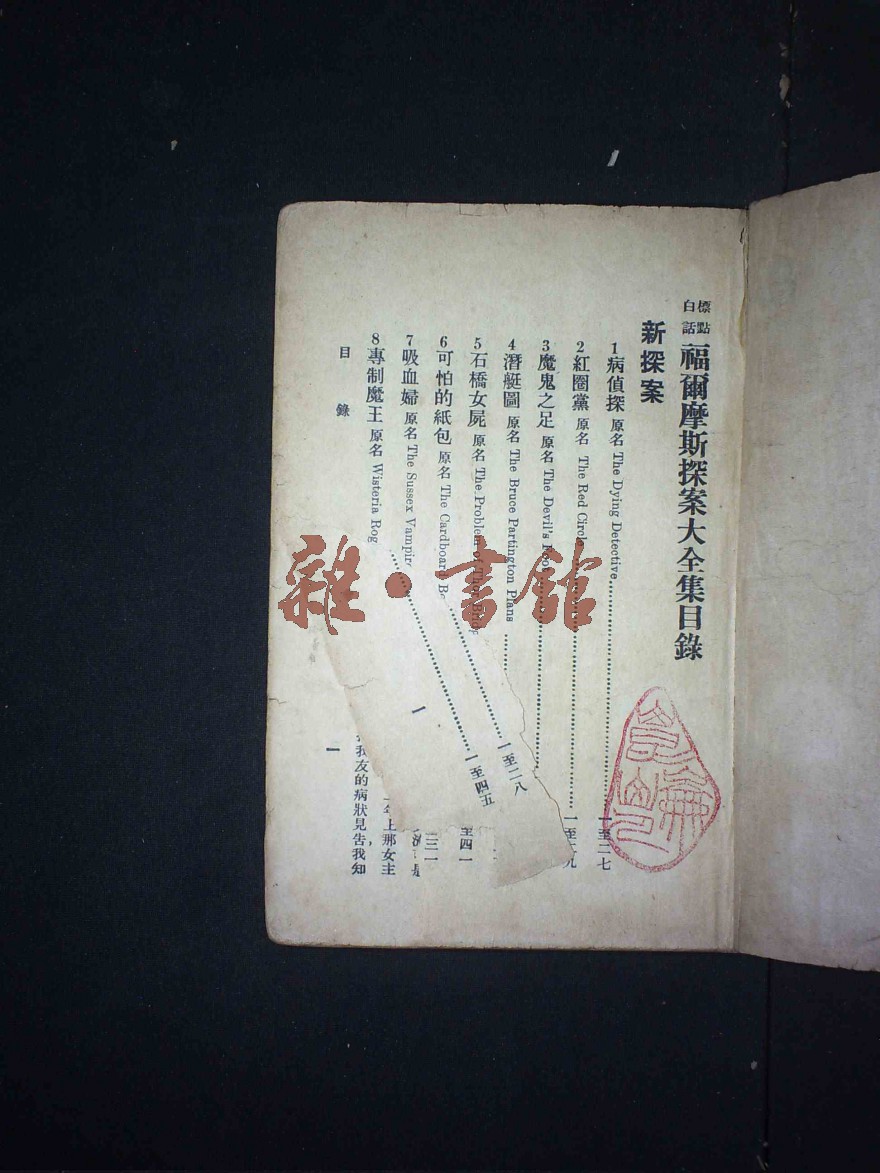 標點
白話
福爾摩斯探案大全集目錄
新探案
1病偵探 原名 The Dying Detective……一至二七
2紅圈黨 原名 The Red Circle……一至二九
3魔鬼之足 原名 The Devil's Foot……
4潛艇圖 原名 The Bruce Partington Plans……
5石橋女屍 原名 The Problem of Thor Bridge……一至二八
6可怕的紙包 原名 The Cardboard Bo……至四一
7吸血婦 原名 The Sussex Vampire……一至四五
8專制魔王 原名 Wisteria Rog
目錄
一
一
三一
年上那女主
我友的病狀見告我知
雜·書館